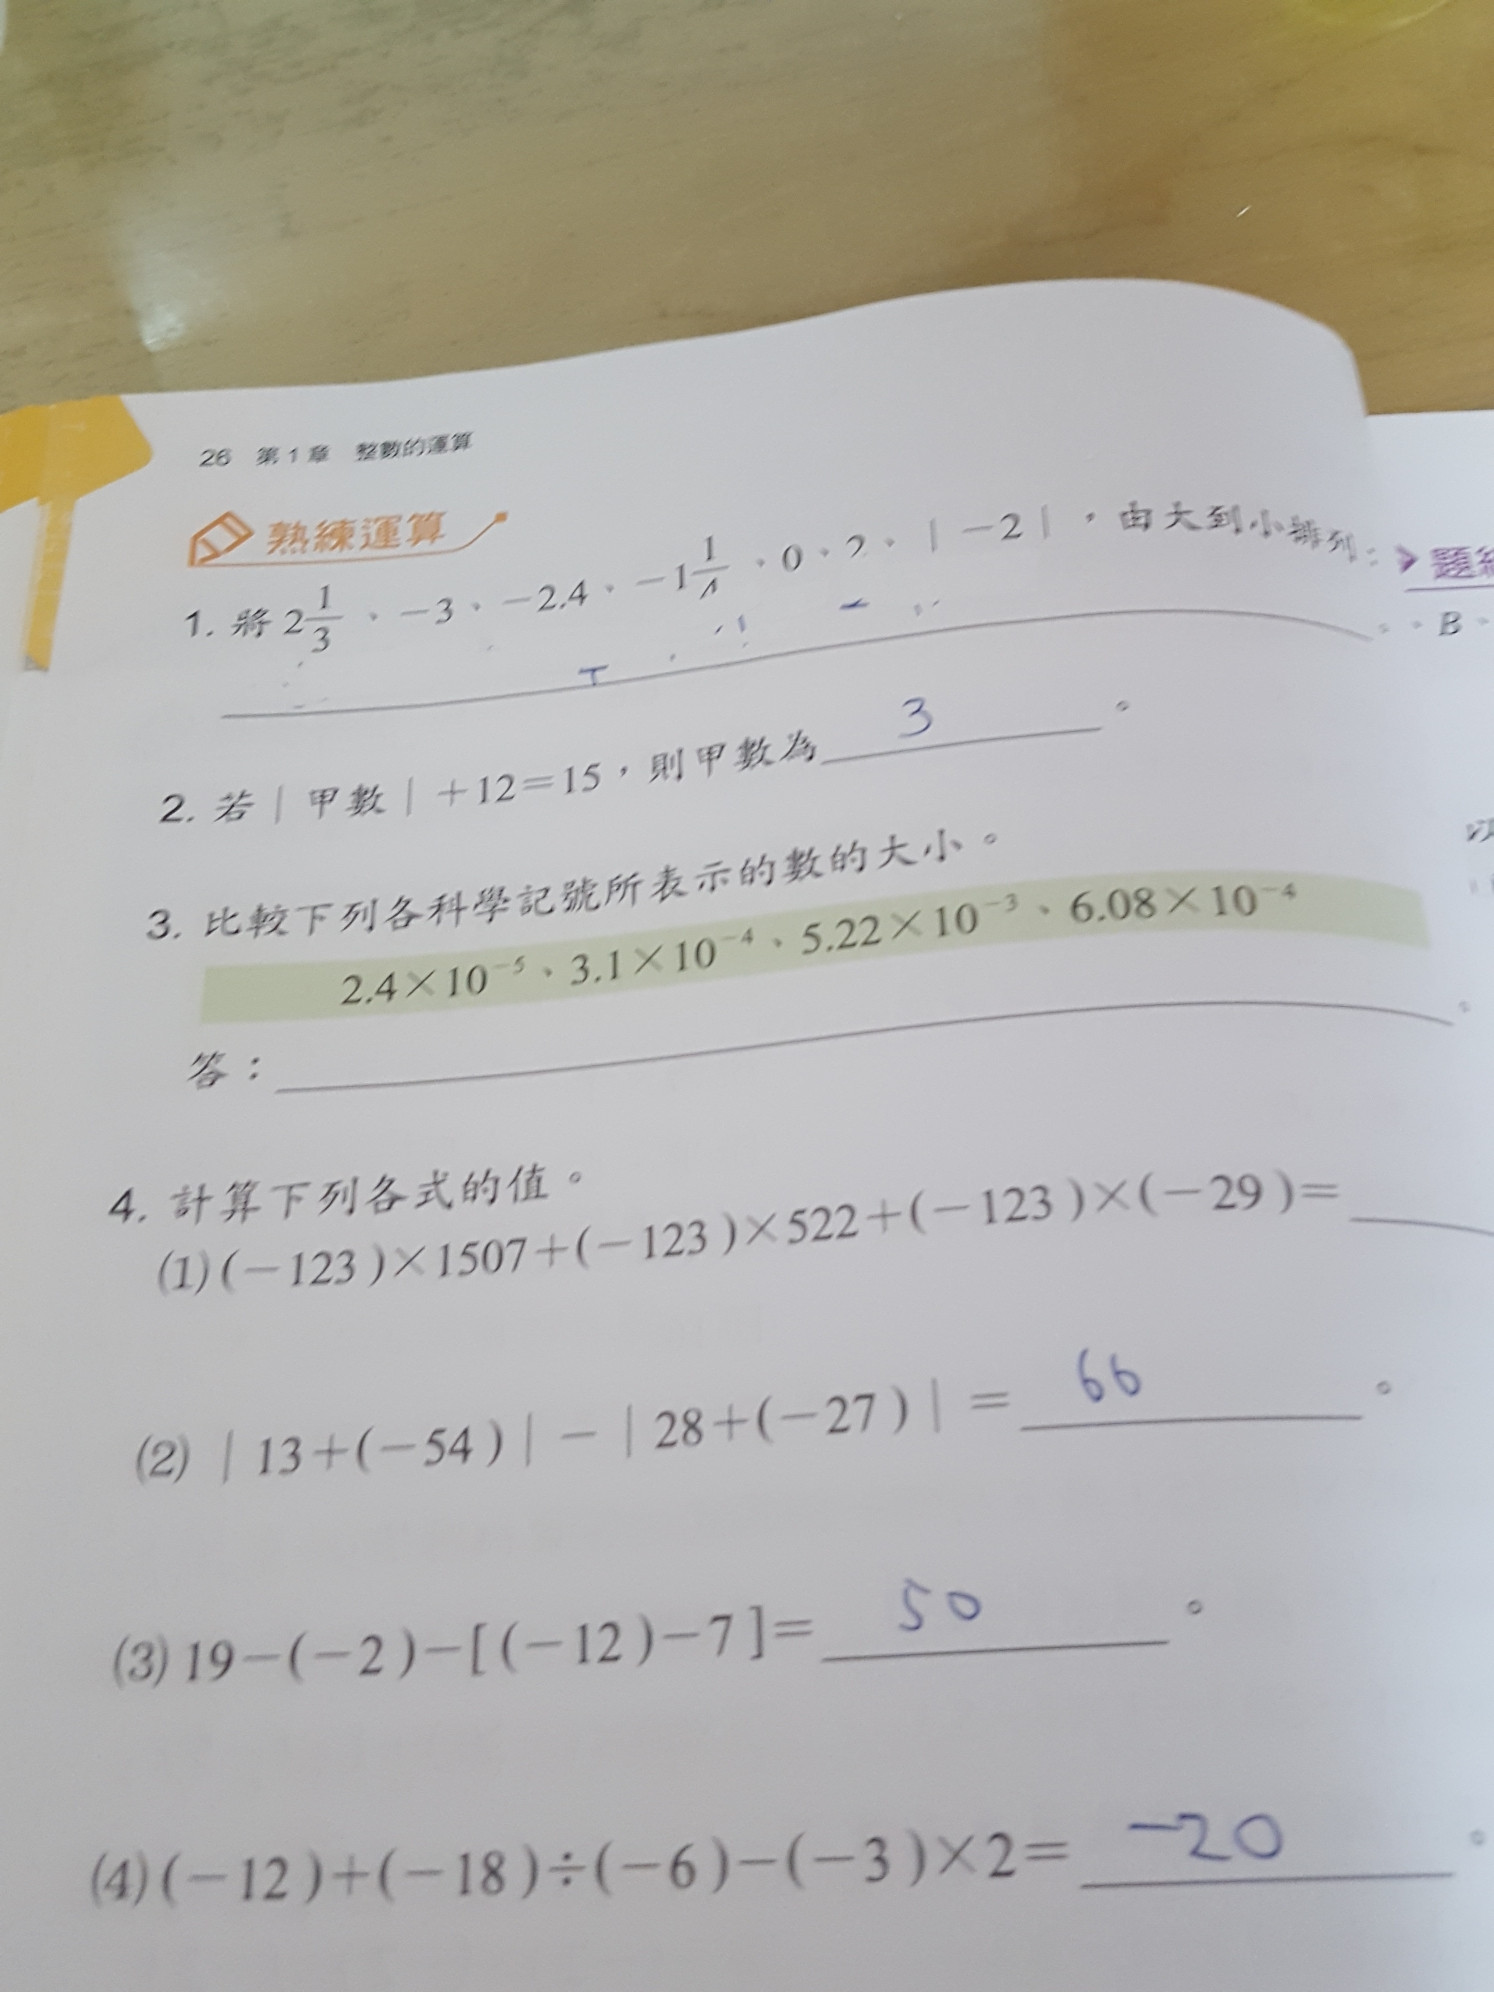 26 第1章 整數的運算
熟練運算
1. 將2 1/3、-3、-2.4、-1 1/4、0、2、|-2|,由大到小排列:
。
2. 若|甲數|+12=15,則甲數為 3 。
3. 比較下列各科學記號所表示的數的大小。
2.4×10⁻⁵、3.1×10⁻⁴、5.22×10⁻³、6.08×10⁻⁴
答: 。
4. 計算下列各式的值。
(1)(-123)×1507+(-123)×522+(-123)×(-29)=
(2)|13+(-54)|-|28+(-27)|= 66 。
(3)19-(-2)-[(-12)-7]= 50 。
(4)(-12)+(-18)÷(-6)-(-3)×2= -20 。
題
B